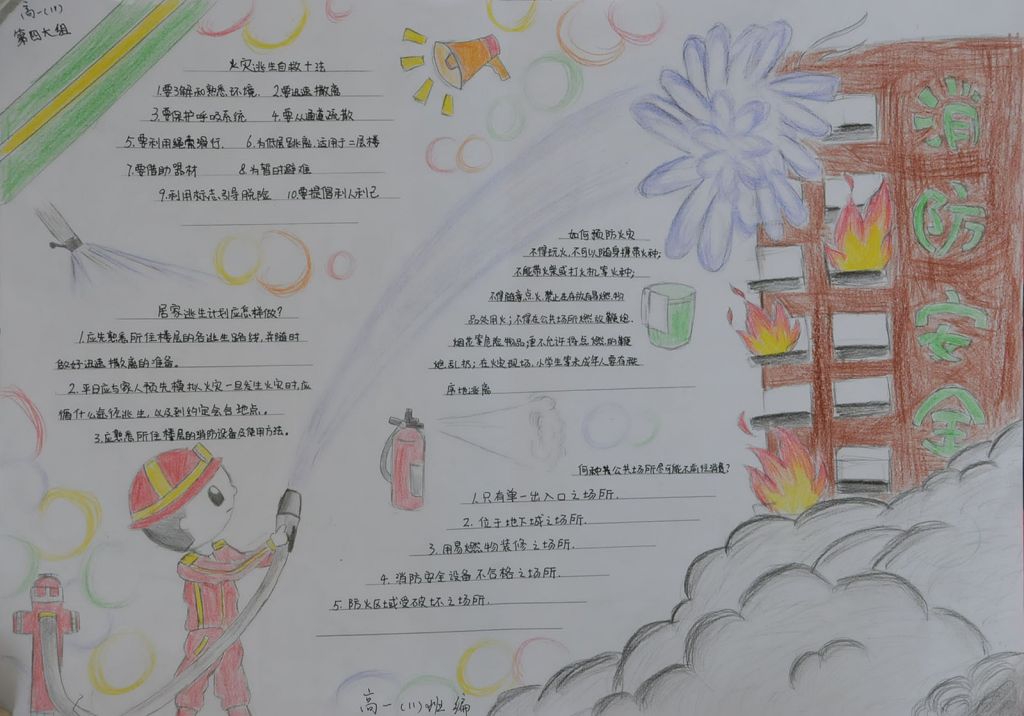 高一(11)
第四大组
火灾逃生自救十法
1.要了解和熟悉环境. 2.要迅速撤离
3.要保护呼吸系统 4.要从通道疏散
5.要利用绳索滑行. 6.为低层跳离,适用于二层楼
7.要借助器材 8.为暂时避难
9.利用标志引导脱险 10.要提倡利人利己
居家逃生计划应怎样做?
1.应先熟悉所住楼层的各逃生路线,并随时
做好迅速撤离的准备。
2.平日应与家人预先模拟火灾一旦发生火灾时,应
循什么途径逃生,以及到约定会合地点。
3.应熟悉所住楼层的消防设备及使用方法。
如何预防火灾
不得玩火,不可以随身携带火种;
不能带火柴或打火机等火种;
不得随意点火,禁止在存放易燃物
品处用火;不得在公共场所燃放鞭炮.
烟花等危险物品;更不允许将点燃的鞭
炮乱扔;在火灾现场,小学生等未成年人要有秩
序地逃离
何种共公共场所尽可能不前往消费?
1.只有单一出入口之场所.
2.位于地下城之场所.
3.用易燃物装修之场所.
4.消防安全设备不合格之场所.
5.防火区域受破坏之场所.
消防安全
高一(11)班 编